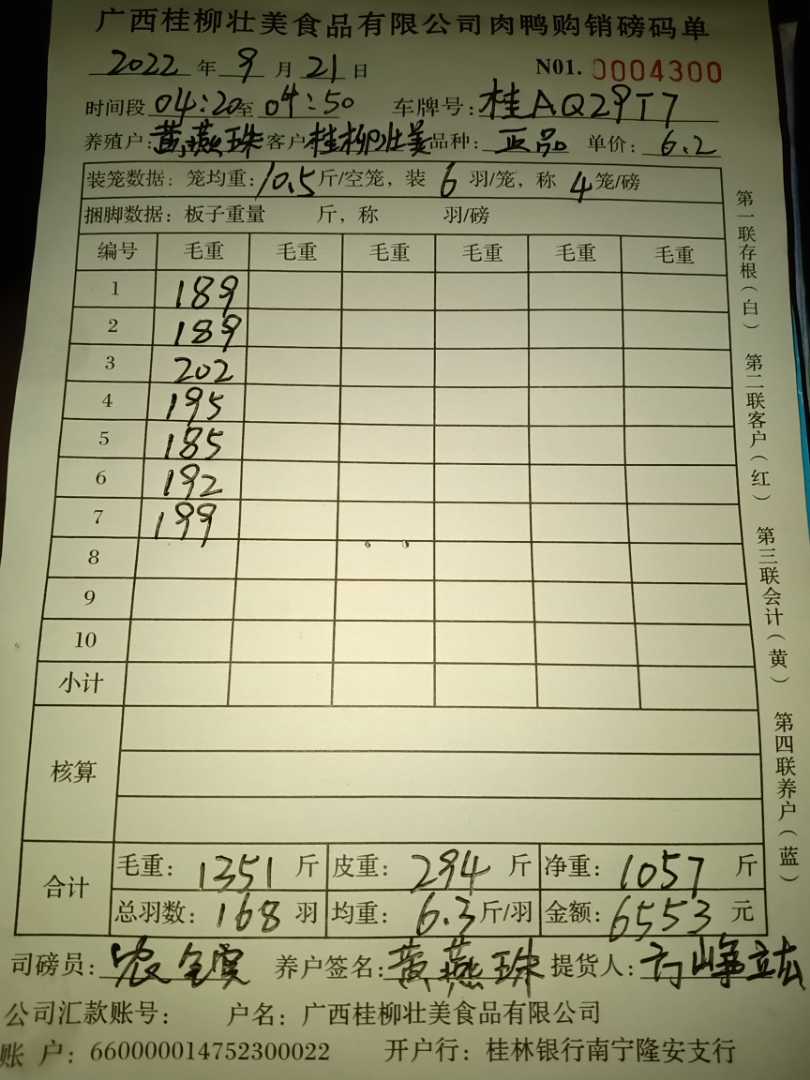 广西桂柳壮美食品有限公司肉鸭购销磅码单
2022 年 9 月 21 日 N01. 0004300
时间段 04:20至 04:50 车牌号: 桂AQ29T7
养殖户: 黄燕珠 客户 桂柳壮美 品种: 正品 单价: 6.2
装笼数据: 笼均重: 10.5 斤/空笼, 装 6 羽/笼, 称 4 笼/磅
捆脚数据: 板子重量 斤, 称 羽/磅
编号 毛重 毛重 毛重 毛重 毛重 毛重
1 189
2 189
3 202
4 195
5 185
6 192
7 199
8
9
10
小计
核算
合计 毛重: 1351 斤 皮重: 294 斤 净重: 1057 斤
总羽数: 168 羽 均重: 6.3 斤/羽 金额: 6553 元
司磅员: 农 养户签名: 黄燕珠 提货人:
公司汇款账号: 户名: 广西桂柳壮美食品有限公司
账 户: 660000014752300022 开户行: 桂林银行南宁隆安支行
第一联存根(白) 第二联客户(红) 第三联会计(黄) 第四联养户(蓝)